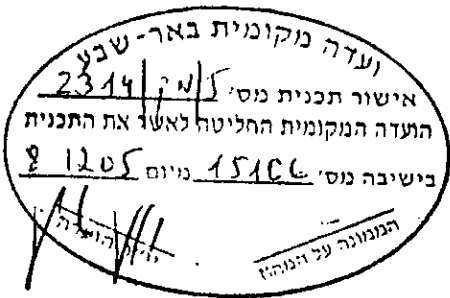 ועדה מקומית באר-שבע
אישור תכנית מס' 5/מק/2314
הועדה המקומית החליטה לאשר את התכנית
בישיבה מס' מיום 8 12 05
הממונה על המחוז